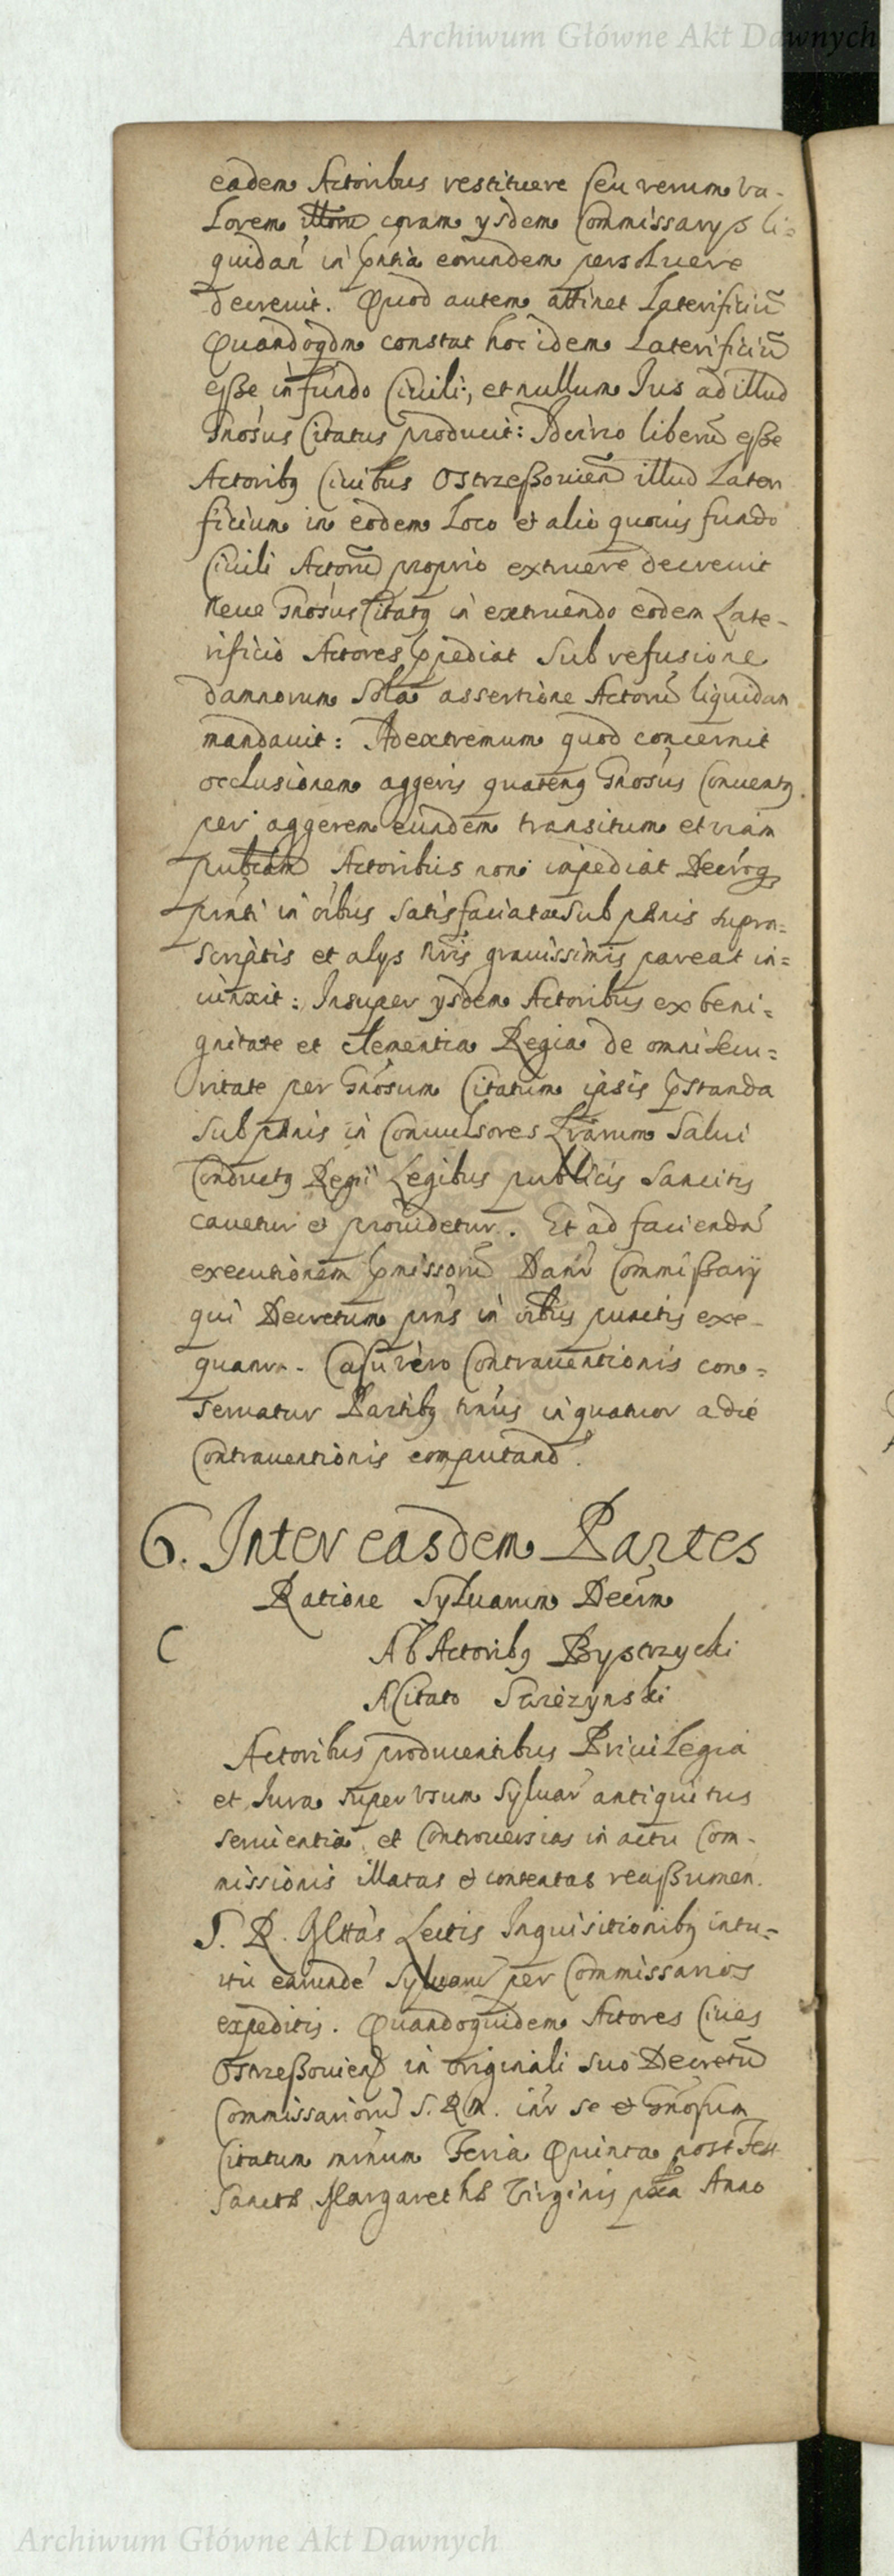 Archiwum Główne Akt Dawnych
eadem Actoribus restituere seu verum va-
lorem illorũ coram ysdem Commissarys li=
quidań in pñtia eorundem persoluere
decrevit. Quod autem attinet Laterificiũ
Quandoqdm constat hoc idem Laterificiũ
eſse in fundo Civili, et nullum Ius ad illud
Gnosus Citatus producit: Idcirco liberũ eſse
Actoribq Civibus Ostrzeßovień illud Lateri
ficium in eodem Loco et alio quovis fundo
Civili Actorũ proprio extruere decrevit
Neve Gnosus Citatq in extruendo eodem Late-
rificio Actores ꝑpediat Sub refusione
damnorum Sola assertione Actorũ liquidan
mandavit: Ad extremum quod concernit
occlusionem aggeris quatenq Gnosus Conventq
per aggerem eundem transitum et viam
publicam Actoribus non impediat Decrog
prñti in oíbus satisfaciat Sub pænis supra=
scriptis et alys Nris gravissimis pareat in=
iunxit: Insuper ysdem Actoribus ex beni=
gnitate et clementia Regia de omni secu=
ritate per Gnosum Citatum ipsis ꝑstanda
sub pænis in Convulsores Lrarum Salvi
Conductq Regii Legibus publicis Sancitis
cavetur et providetur. Et ad faciendã
executionem ꝑmissorũ Danť Commißarij
qui Decretum prñs in oíbus punctis exe-
quanť. Casu vero Contraventionis con=
servatur Partibq trnús in quatuor a die
Contraventionis computand.
6. Inter easdem Partes
Ratione Sylvarum Decrm
C Ab Actoribq Bystrzycki
A Citato
Actoribus producentibus Privilegia
et Iura super Usum Sylvar antiquitus
servientia et Controversias in actu Com-
missionis illatas et contentas reaßumen.
S. R. Mttas Lectis Inquisitionibq intu=
itu earundé Sylvarũ per Commissarios
expeditis. Quandoquidem Actores Cives
Ostrzeßovień in originali suo Decretũ
Commissariorũ S. R. M. inť se et Gnosum
Citatum Feria Quinta post Fest
Sanctæ Margarethæ Virginis pxa Anno
Archiwum Główne Akt Dawnych